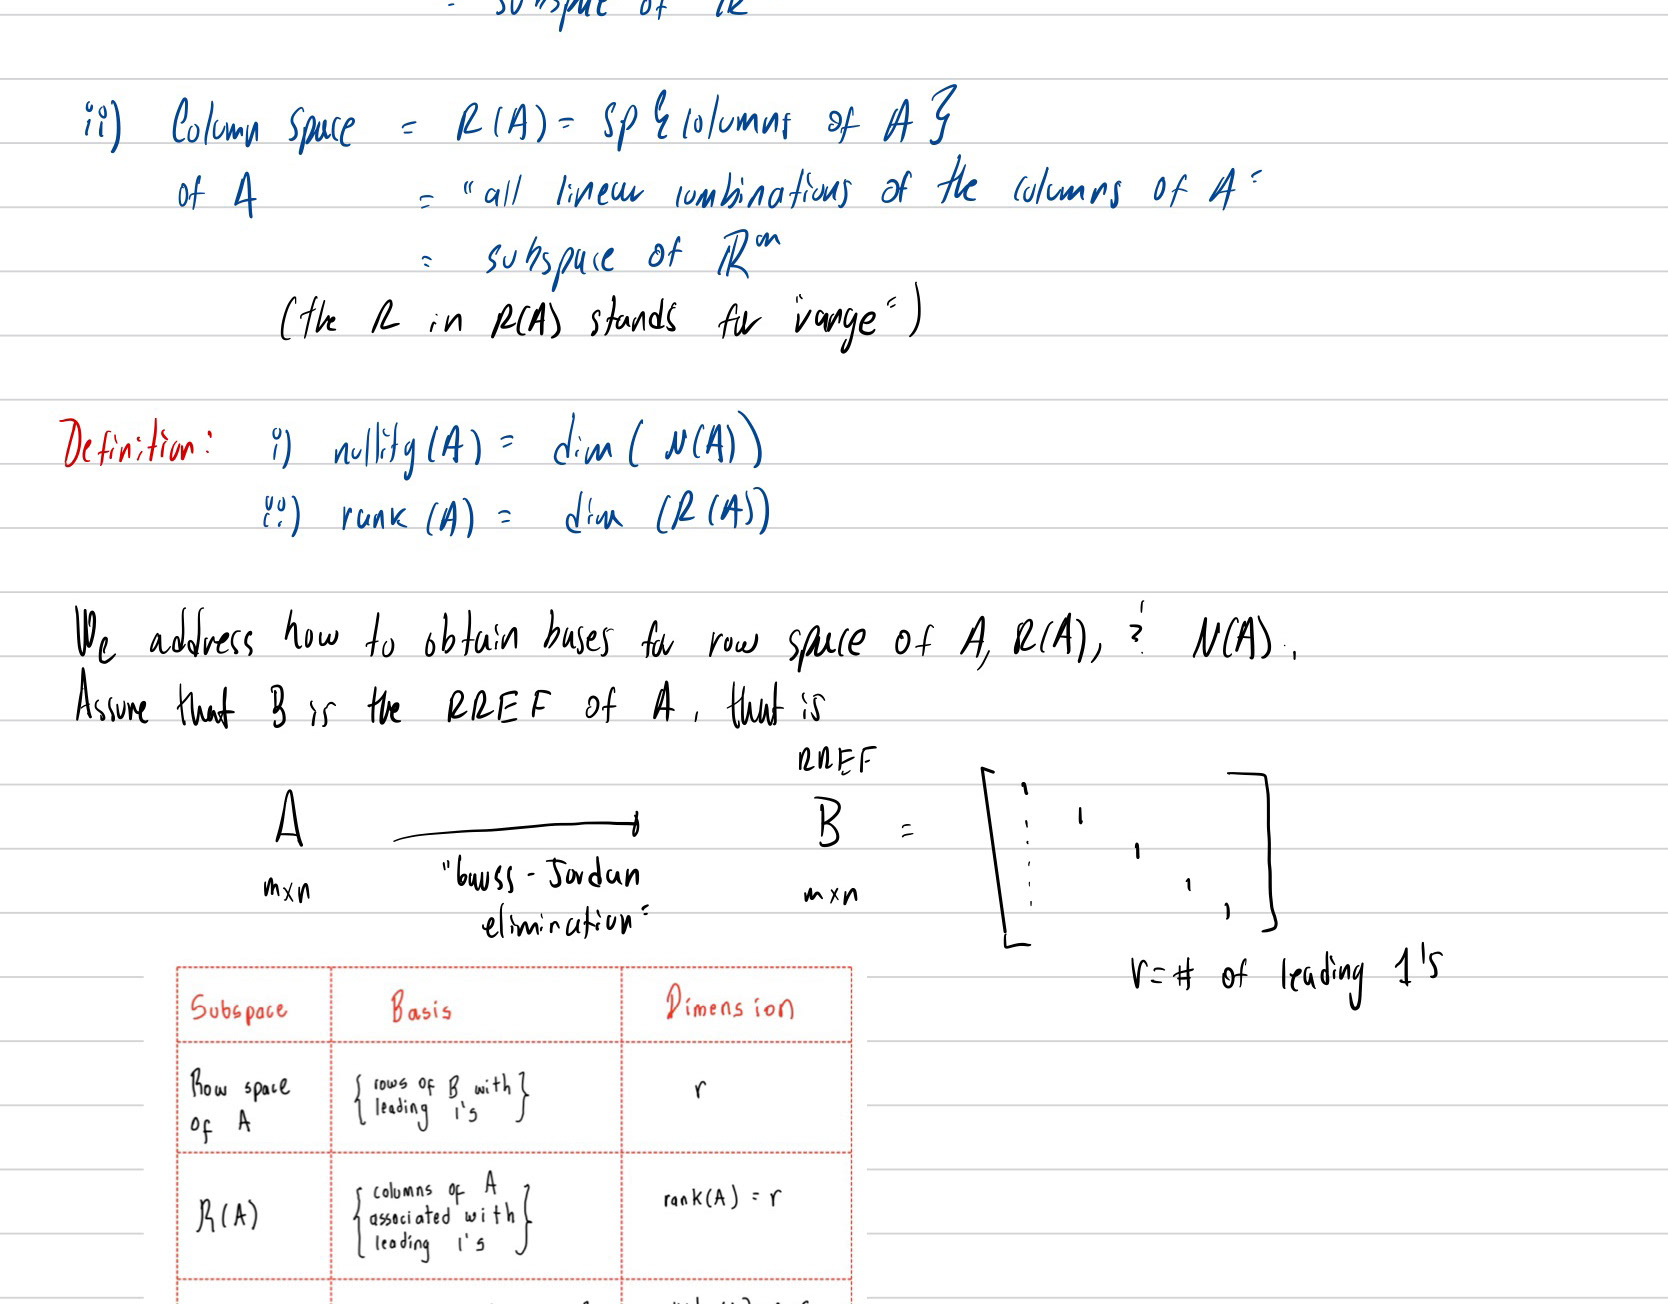 = subspace of R
ii) Column space = R(A) = sp{columns of A}
of A = "all linear combinations of the columns of A"
= subspace of ℝᵐ
(the R in R(A) stands for "range")
Definition: i) nullity(A) = dim(N(A))
ii) rank(A) = dim(R(A))
We address how to obtain bases for row space of A, R(A), & N(A).
Assume that B is the RREF of A, that is
RREF
A → B = [1 1 1 1 1]
m×n "Gauss-Jordan m×n
elimination"
r = # of leading 1's
Subspace Basis Dimension
Row space {rows of B with r
of A leading 1's}
R(A) {columns of A rank(A) = r
associated with
leading 1's}